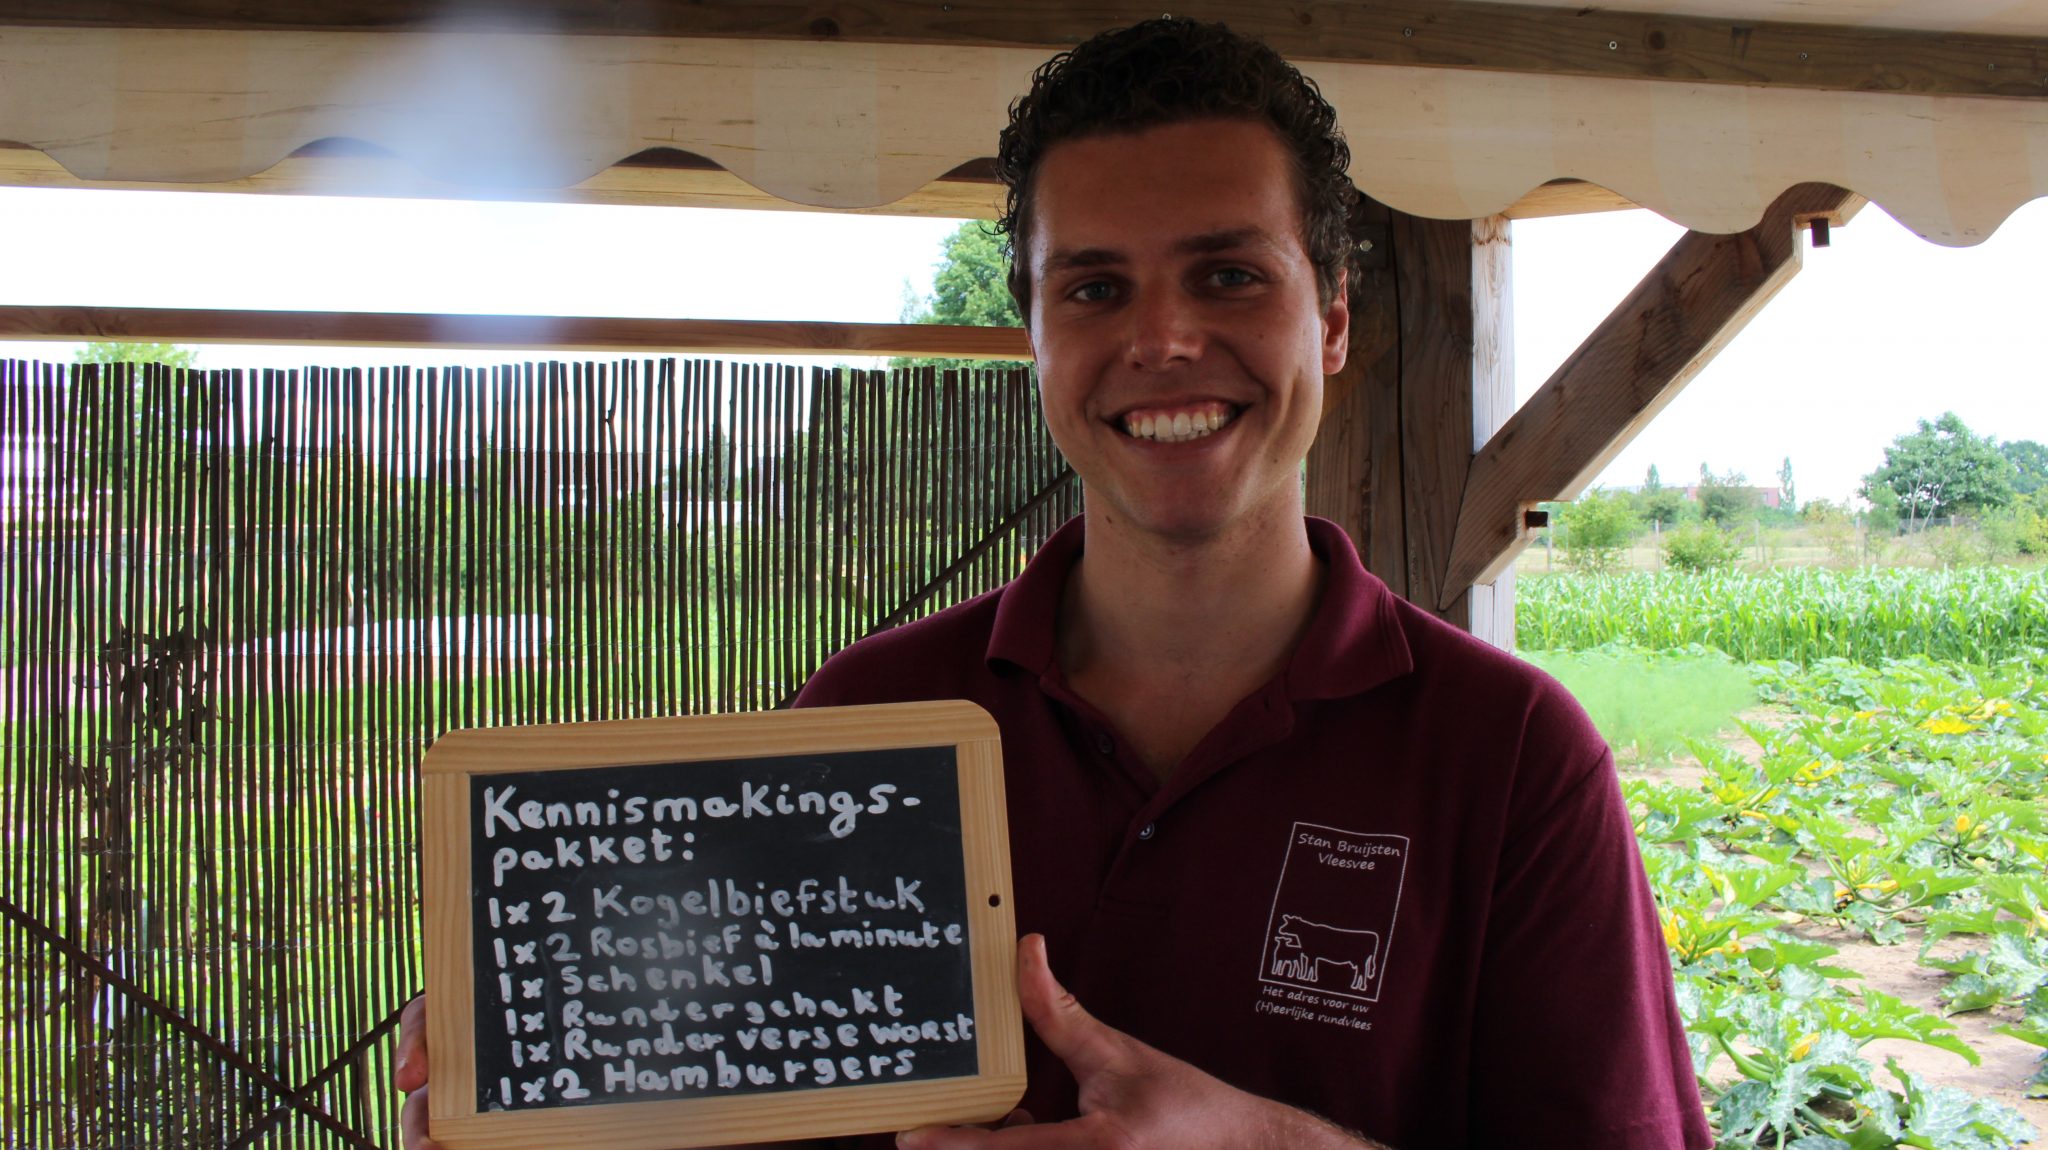 Kennismakings-
pakket:
1x 2 Kogelbiefstuk
1x 2 Rosbief à la minute
1x Schenkel
1x Rundergehakt
1x Runder verse worst
1x 2 Hamburgers
Stan Bruijsten
Vleesvee
Het adres voor uw
(H)eerlijke rundvlees